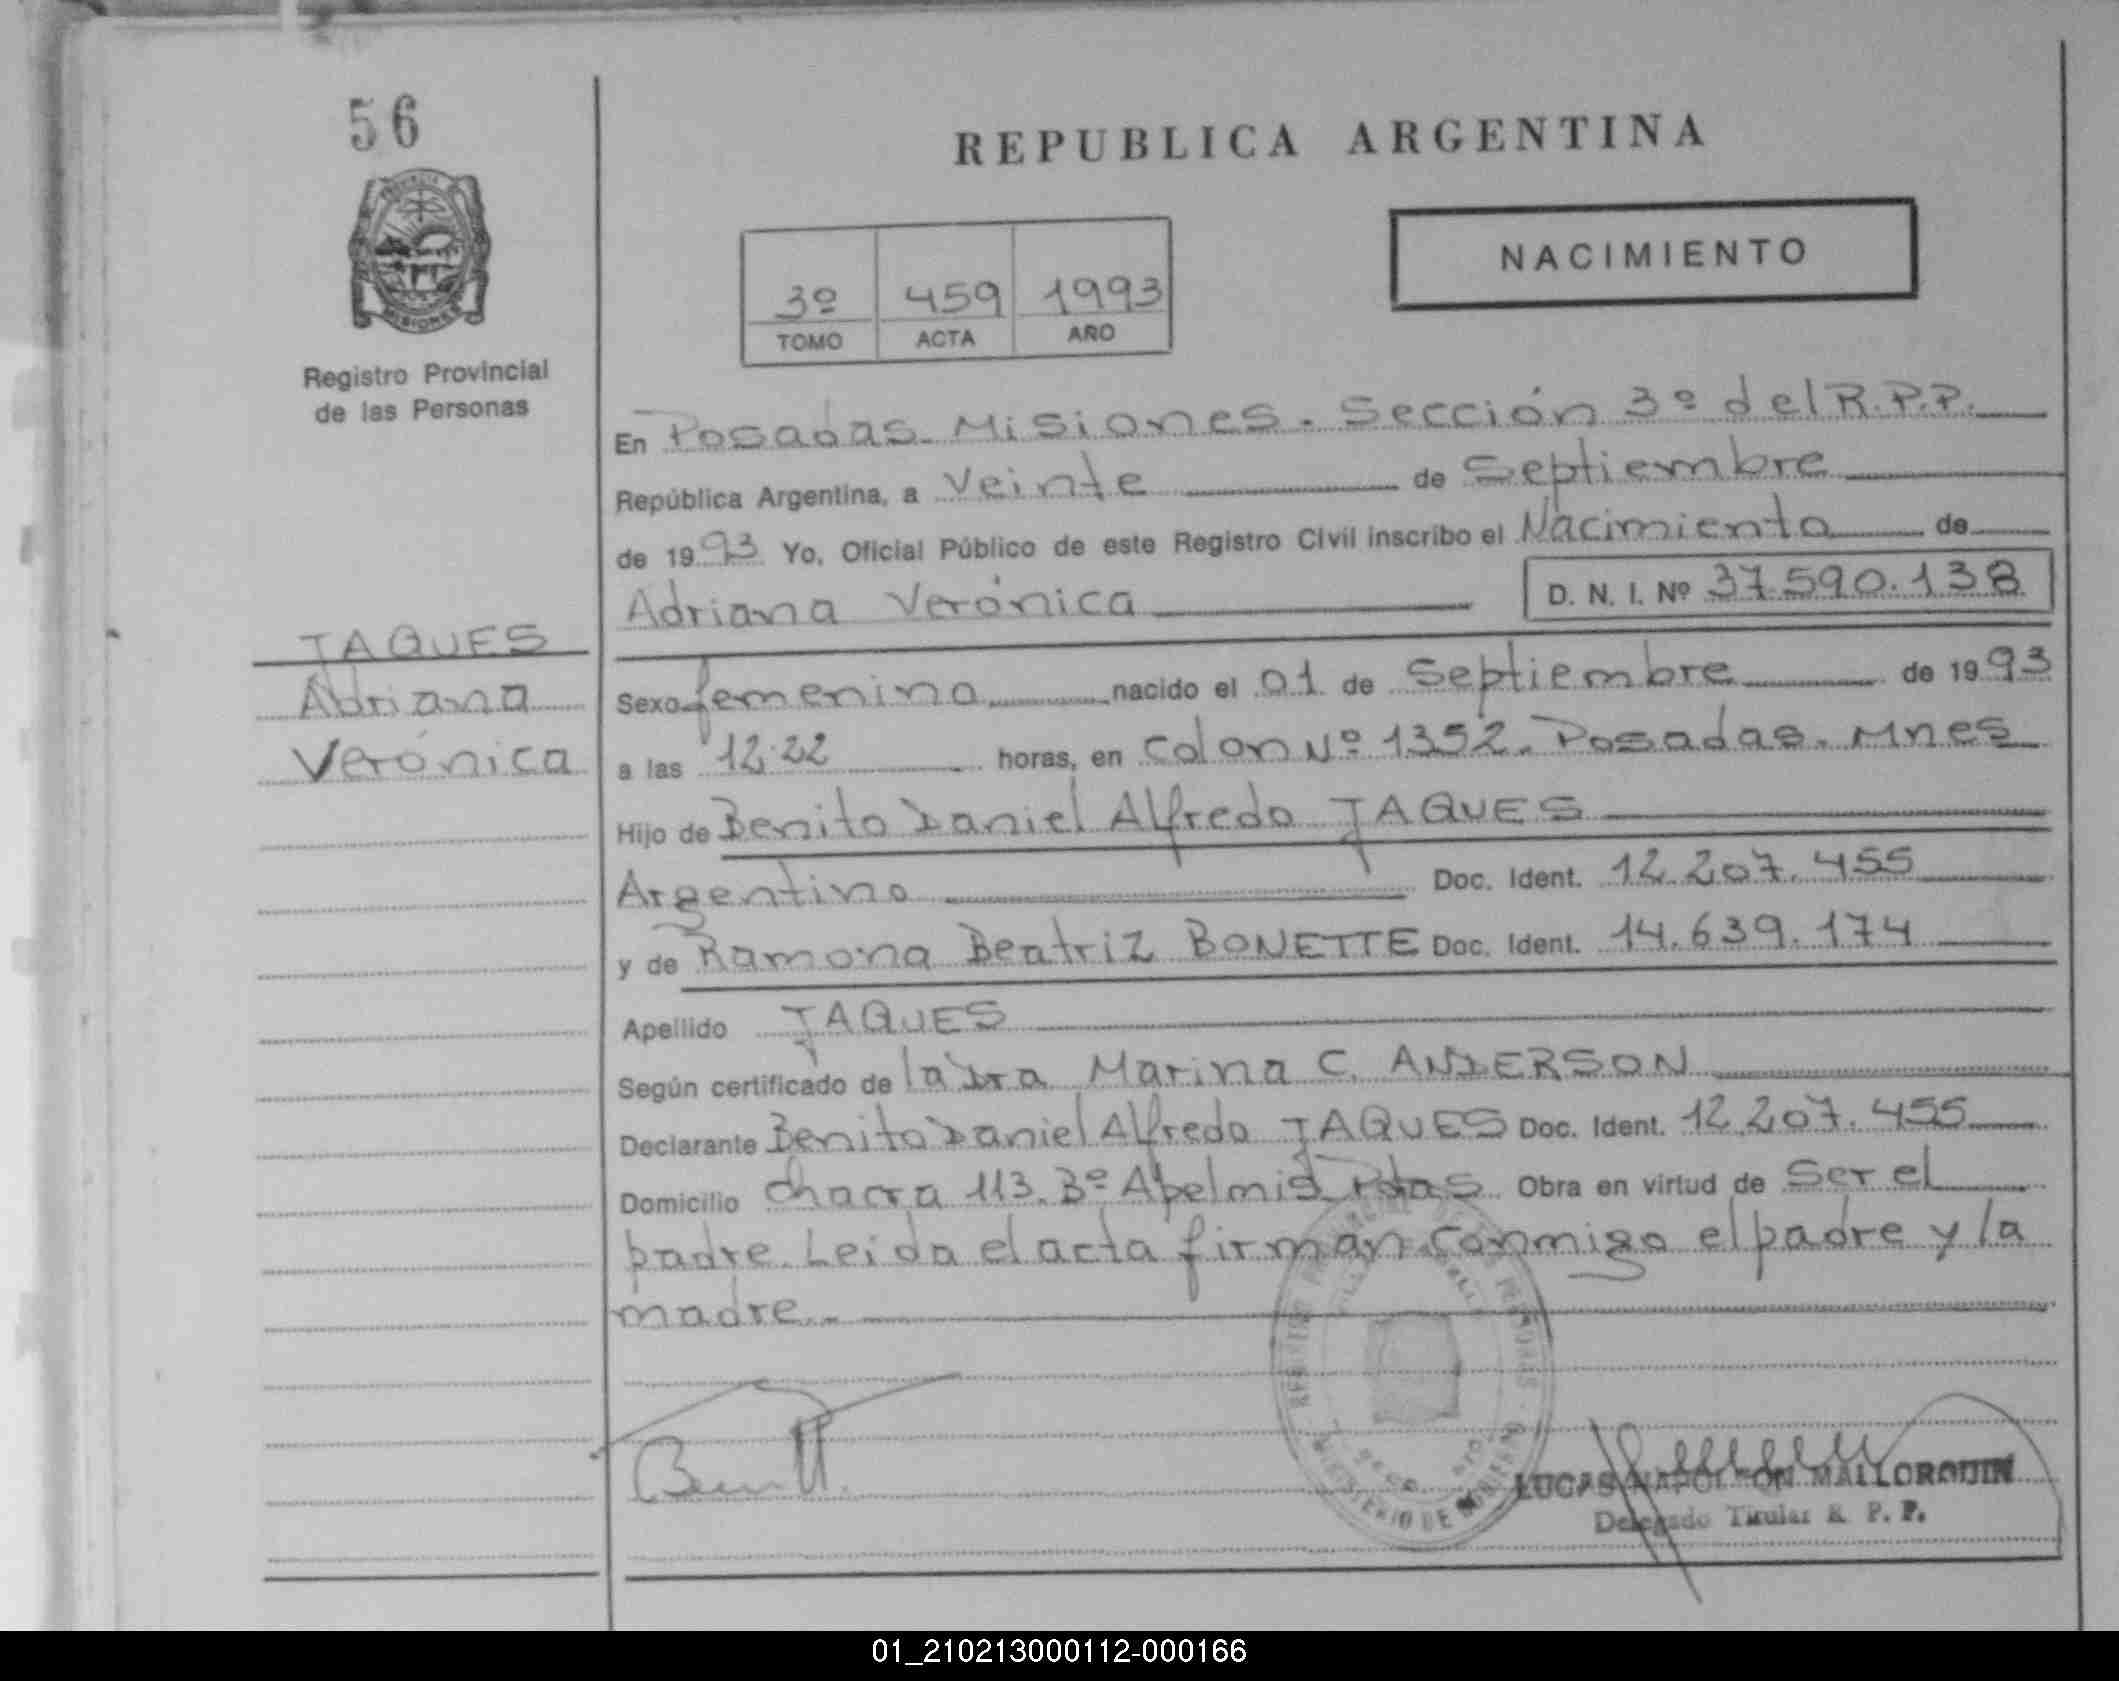 56
REPUBLICA ARGENTINA
NACIMIENTO
3º 459 1993
TOMO ACTA AÑO
Registro Provincial
de las Personas
En Posadas. Misiones. Sección 3º del R.P.P.
República Argentina, a Veinte de Septiembre
de 1993 Yo, Oficial Público de este Registro Civil inscribo el Nacimiento de
Adriana Verónica D. N. I. Nº 37.590.138
JAQUES
Adriana
Verónica
Sexo femenino nacido el 01 de Septiembre de 1993
a las 12.22 horas, en Colon Nº 1352. Posadas. Mnes
Hijo de Benito Daniel Alfredo JAQUES
Argentino Doc. Ident. 12.207.455
y de Ramona Beatriz BONETTE Doc. Ident. 14.639.174
Apellido JAQUES
Según certificado de la Dra Marina C. ANDERSON
Declarante Benito Daniel Alfredo JAQUES Doc. Ident. 12.207.455
Domicilio Chacra 113. Bº Apelmis Pdas. Obra en virtud de Ser el
padre. Leida el acta firman conmigo el padre y la
madre.
LUCAS NAPOLEON MALLORQUIN
Delegado Titular R. P. P.
MINISTERIO DE GOBIERNO
01_210213000112-000166